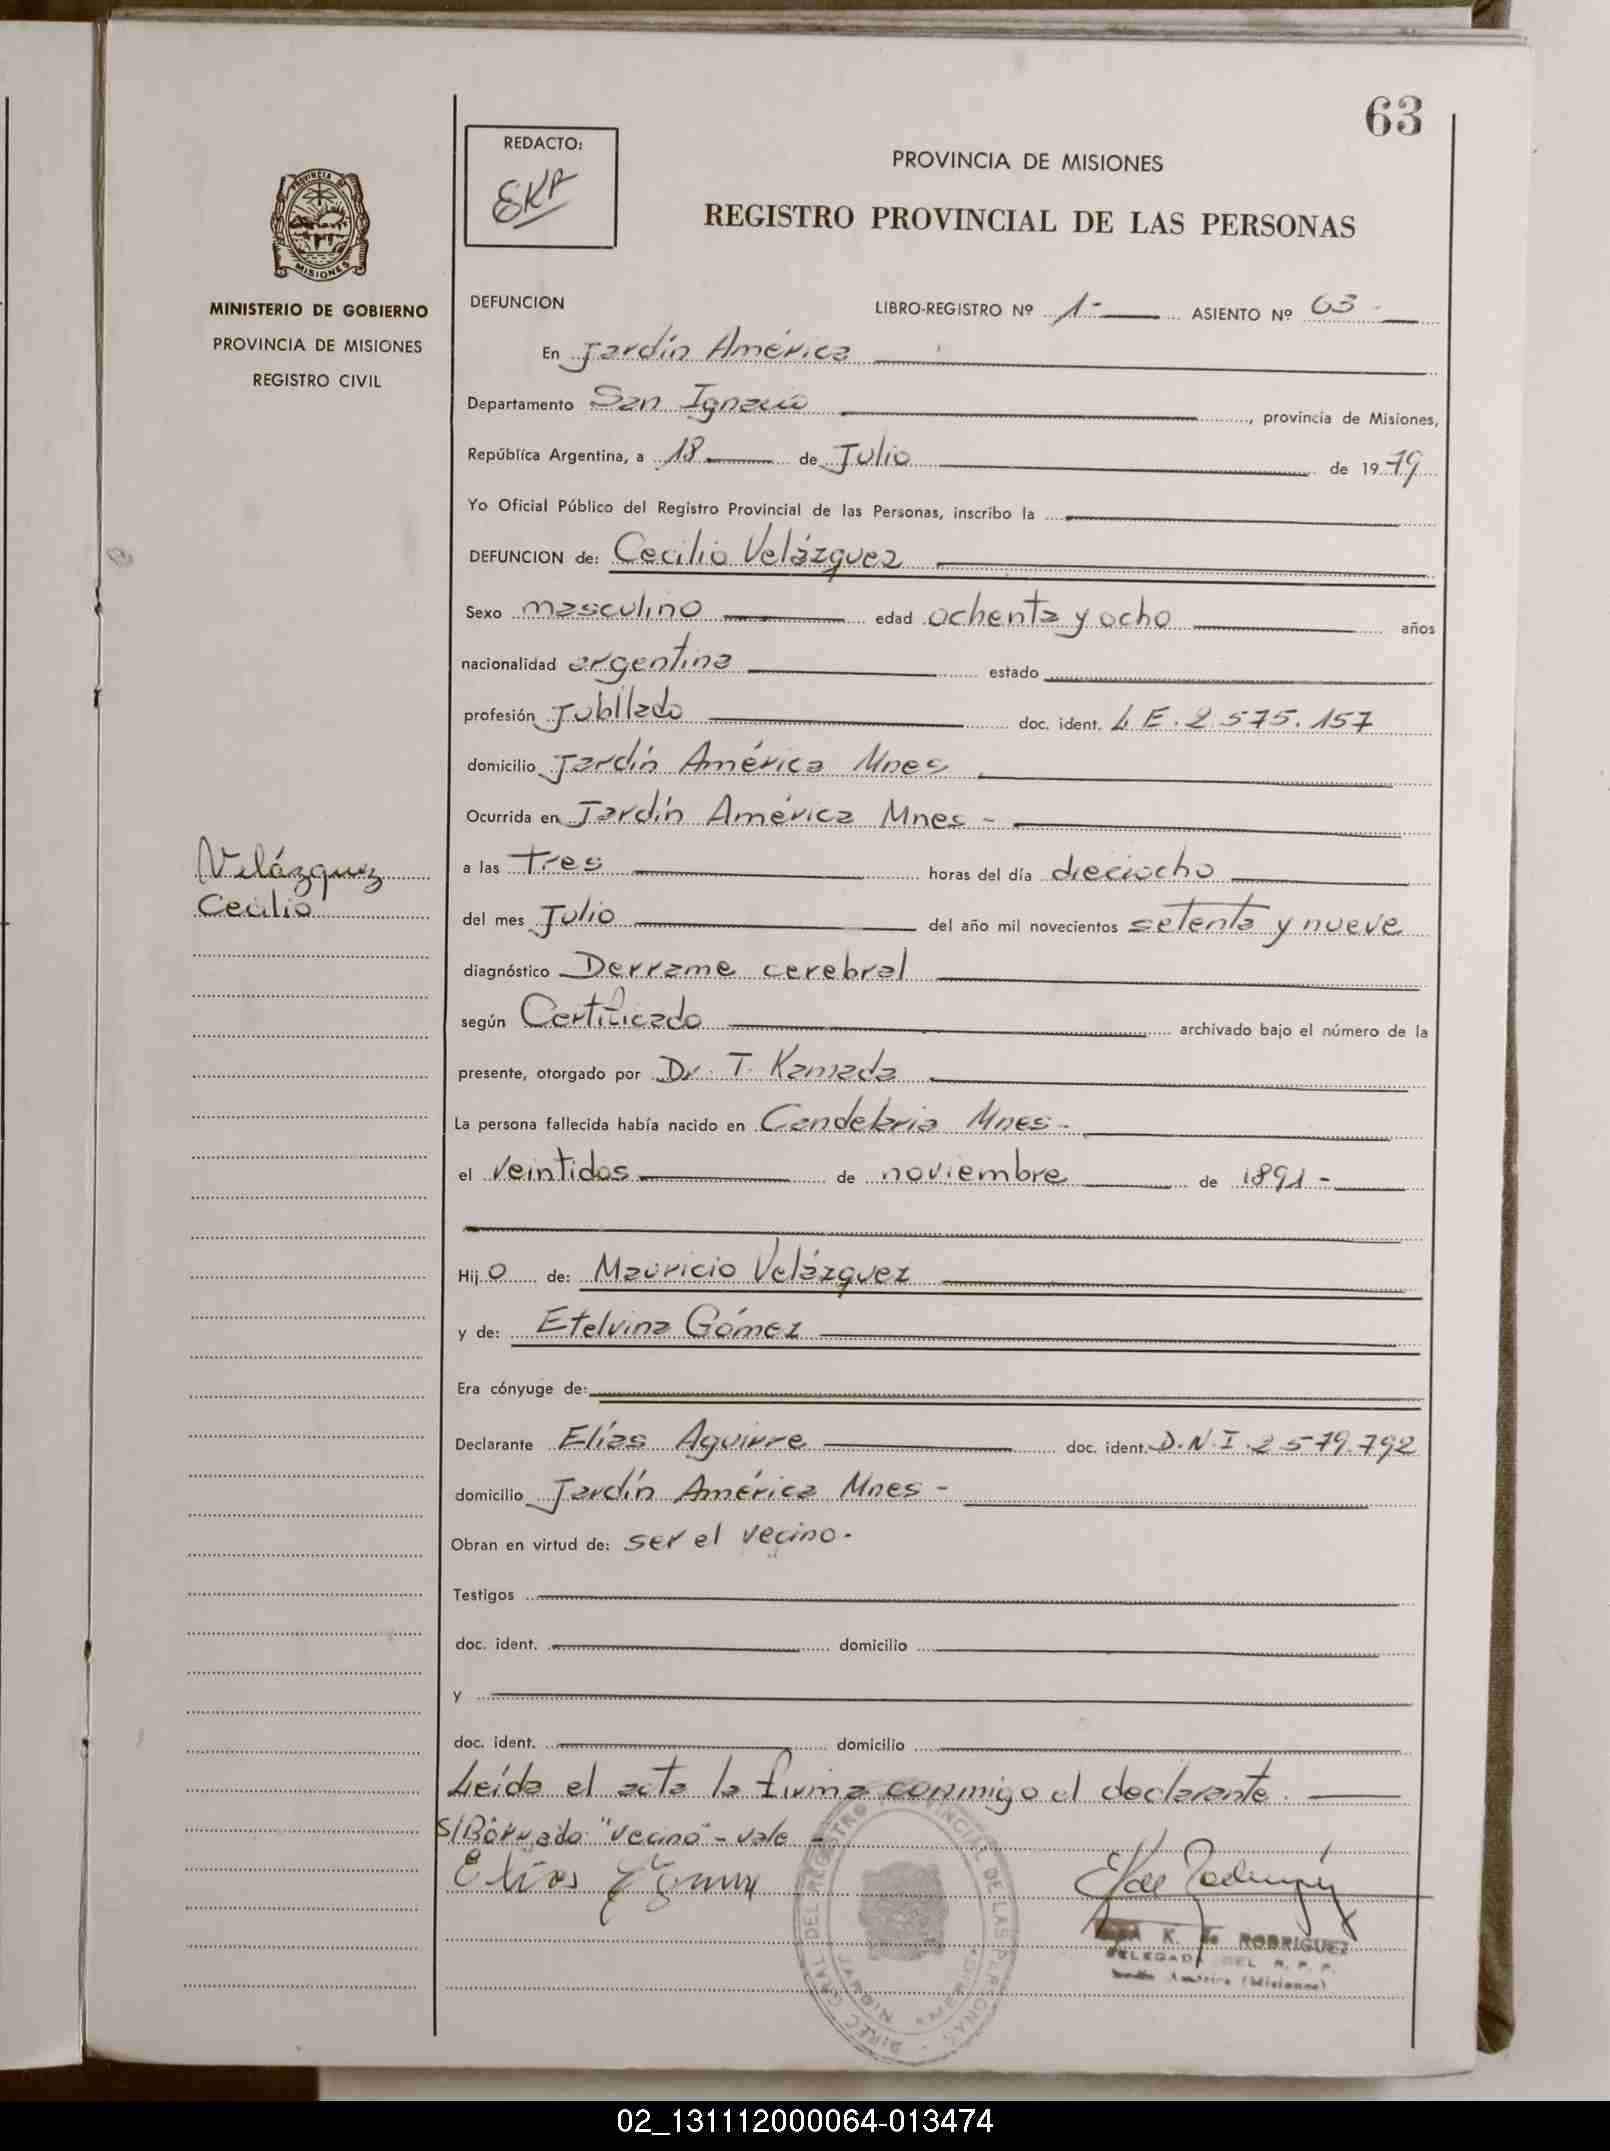 63
REDACTO:
EKR
PROVINCIA DE MISIONES
REGISTRO PROVINCIAL DE LAS PERSONAS
PROVINCIA DE
MISIONES
MINISTERIO DE GOBIERNO
PROVINCIA DE MISIONES
REGISTRO CIVIL
DEFUNCION LIBRO-REGISTRO Nº 1- ASIENTO Nº 63-
En Jardín América
Departamento San Ignacio, provincia de Misiones,
República Argentina, a 18 de Julio de 1979
Yo Oficial Público del Registro Provincial de las Personas, inscribo la
DEFUNCION de: Cecilio Velázquez
Sexo masculino edad ochenta y ocho años
nacionalidad argentina estado
profesión Jubilado doc. ident. L E. 2 575. 157
domicilio Jardín América Mnes
Ocurrida en Jardín América Mnes -
Velázquez
Cecilio
a las Tres horas del día dieciocho
del mes Julio del año mil novecientos setenta y nueve
diagnóstico Derrame cerebral
según Certificado archivado bajo el número de la
presente, otorgado por Dr. T. Kamada
La persona fallecida había nacido en Candelaria Mnes -
el veintidos de noviembre de 1891 -
Hijo de: Mauricio Velázquez
y de: Etelvina Gómez
Era cónyuge de:
Declarante Elías Aguirre doc. ident. D.N.I. 2 579.792
domicilio Jardín América Mnes -
Obran en virtud de: ser el vecino -
Testigos
doc. ident. domicilio
y
doc. ident. domicilio
Leída el acta la firma conmigo el declarante.
S/Borrado "vecino" - vale -
Elías
K. de RODRIGUEZ
DELEGADA DEL R. P. P.
América (Misiones)
DIREC. GRAL. DEL REGISTRO PROVINCIAL DE LAS PERSONAS
JARDIN AMERICA
02_131112000064-013474